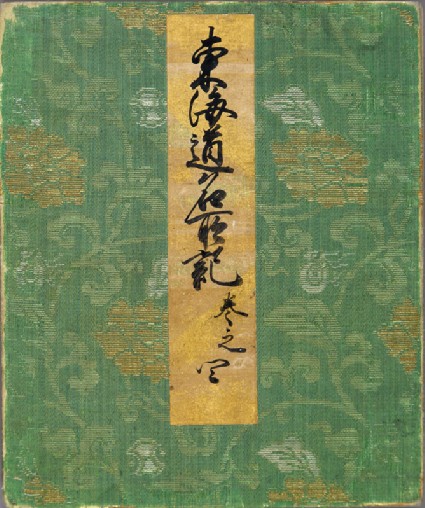 東海道名所記 巻之四